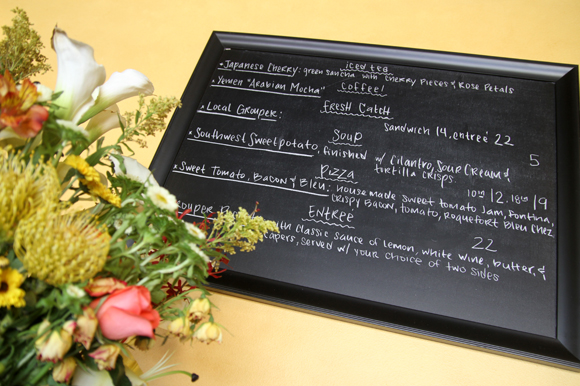 iced tea
• Japanese Cherry: green sencha with cherry pieces & rose petals
Coffee!
• Yemen "Arabian Mocha"
Fresh Catch
• Local Grouper:
Sandwich 14, entrée 22
Soup
• Southwest Sweet potato, finished w/ cilantro, sour cream &
tortilla crisps
5
Pizza
10in 12. 18in 19
• Sweet Tomato, Bacon & Bleu: house made sweet tomato jam, fontina,
crispy bacon, tomato, roquefort bleu chez
Entrée
22
with classic sauce of lemon, white wine, butter, &
capers, served w/ your choice of two sides